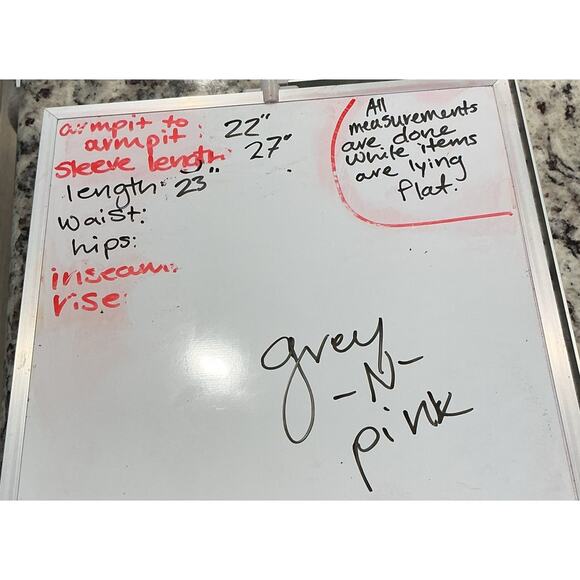 armpit to
armpit: 22"
sleeve length: 27"
length: 23"
waist:
hips:
inseam:
rise:
All
measurements
are done
while items
are lying
flat.
grey
-N-
pink